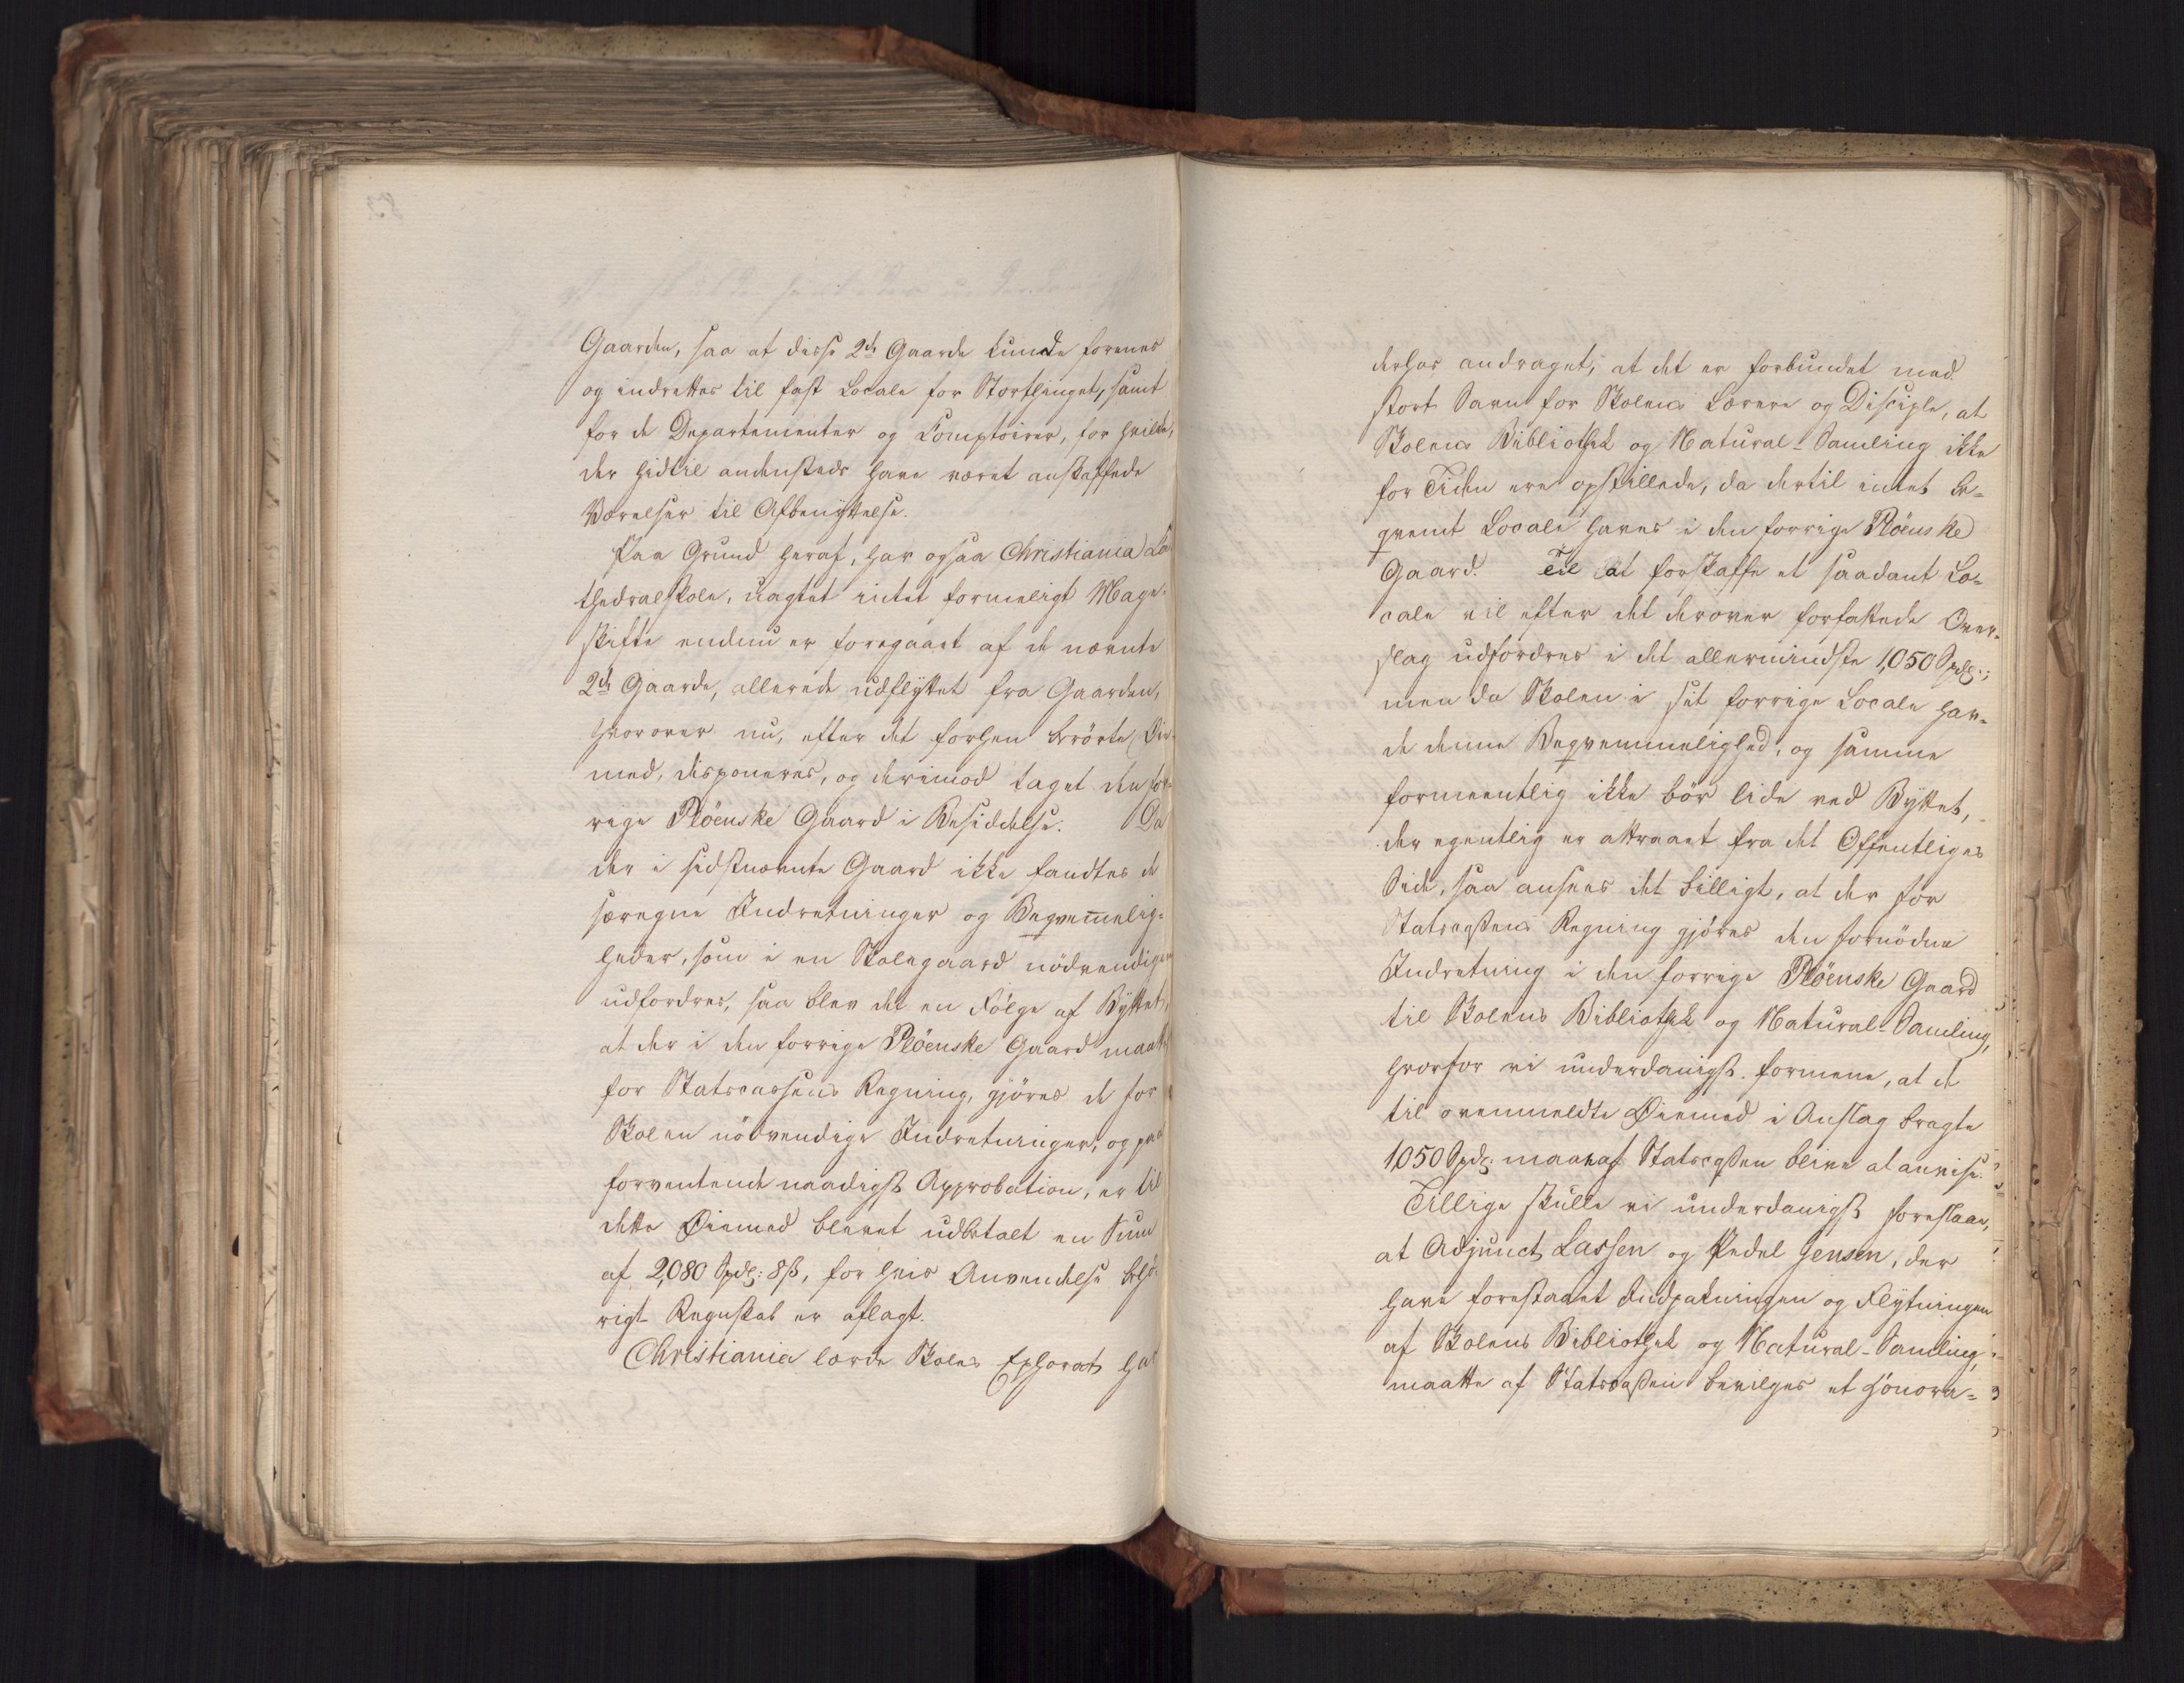 Gaarden, saa at disse 2de Gaarde kunde forenes
og indrettes til fast Locale for Storthinget, samt
for de Departementer og Comptoirer, for hvilke,
der hidtil andensteds have været anskaffede
Værelser til Afbenyttelse.
Paa Grund heraf, har ogsaa Christiania Ca
thedralskole, uagtet intet formeligt Mage-
skifte endnu er foregaaet af de nævnte
2de Gaarde, allerede udflyttet fra Gaarden,
hvorover nu, efter det forhen berörte Øie-
med, disponeres, og derimod taget den for-
rige Plöenske Gaard i Besiddelse. Da
der i sidstnævnte Gaard ikke fandtes de
særegne Indretninger og Beqvemmelig-
heder, som i en Skolegaard nödvendigen
udfordres, saa blev det en Fölge af Byttet,
at der i den forrige Plöenske Gaard maatte
for Statscassens Regning, gjöres de for
Skolen nödvendige Indretninger, og paa
forventende naadigst Approbation, er til
dette Øiemed blevet udbetalt en Sum
af 2,080 Spdlr: 8 ß, for hvis Anvendelse behö-
rigt Regnskab er aflagt.
Christiania lærde Skoles Ephorat har
derhos andraget, at det er forbundet med
stort Savn for Skolens Lærere og Disciple, at
Skolens Bibliothek og Natural-Samling ikke
for Tiden ere opstillede, da dertil intet be-
qvemt Locale haves i den forrige Plöenske
Gaard. Til at forskaffe et saadant Lo-
cale vil efter det derover forfattede Over-
slag udfordres i det allermindste 1,050 Spdlr:;
men da Skolen i sit forrige Locale hav-
de denne Beqvemmelighed, og samme
formeentlig ikke bör lide ved Byttet,
der egentlig er attraaet fra det Offentliges
Side, saa ansees det billigt, at der for
Statscassens Regning gjöres den fornödne
Indretning i den forrige Plöenske Gaard
til Skolens Bibliothek og Natural-Samling,
hvorfor vi underdanigst formene, at de
til ovenmeldte Øiemed i Anslag bragte
1050 Spdlr: maa af Statscassen blive at anvise.
Tillige skulle vi underdanigst foreslaae,
at Adjunct Lassen og Pedel Jensen, der
have forestaaet Indpakningen og Flytningen
af Skolens Bibliothek og Natural-Samling,
maatte af Statscassen bevilges et Honora-